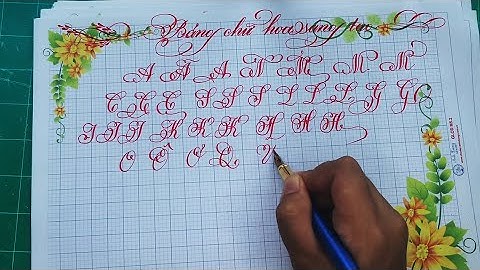 Bảng chữ hoa sáng tạo
A Ã A N M M M
C C E S S S L L L G G
I I I K K K H H H
O Ô Ơ Q V